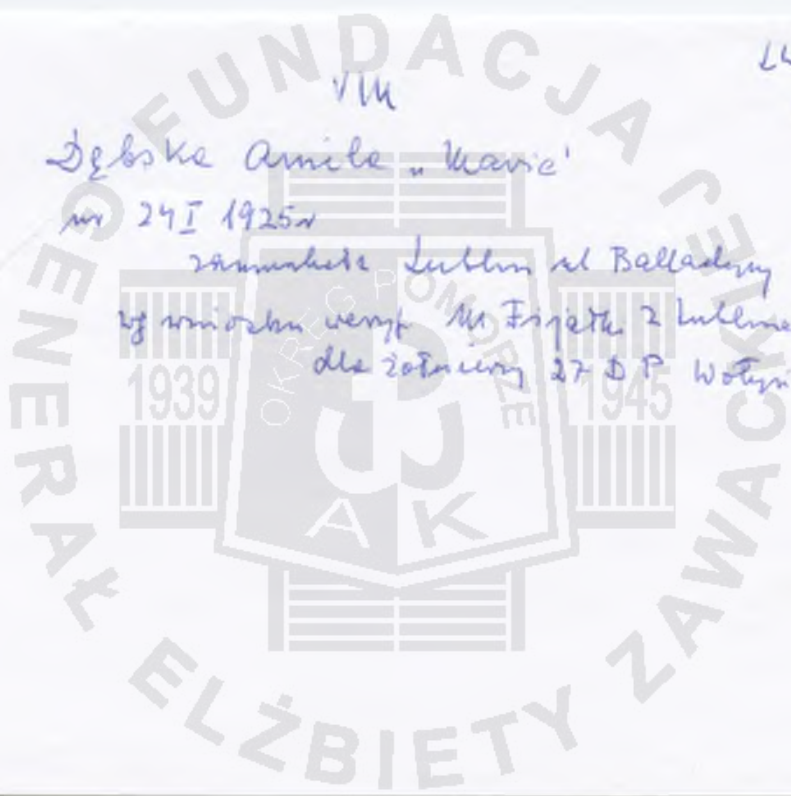 VIII
Dębska Amila „Maria"
ur 24 I 1925r
zamieszkała Lublin ul Balladyny
wg wniosku weryf M Fijałki z Lublina
dla żołnierzy 27 D P Wołyń
FUNDACJA GENERAŁ ELŻBIETY ZAWACKIEJ
OKRĘG POMORZE
1939
1945
AK